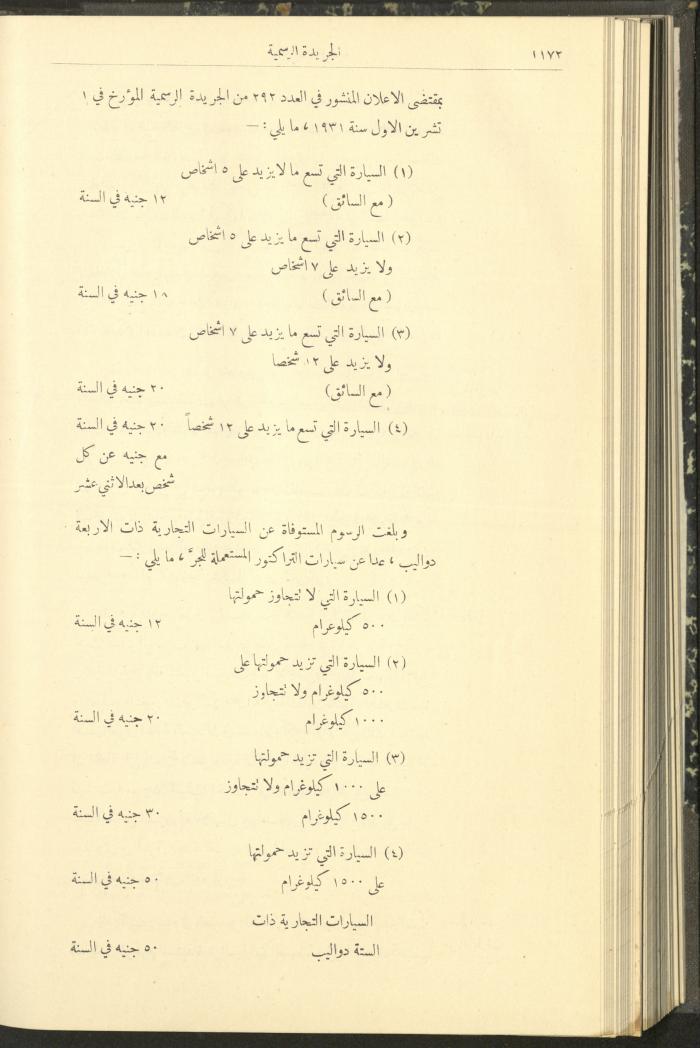 ١١٧٢
الجريدة الرسمية
بمقتضى الاعلان المنشور في العدد ٢٩٢ من الجريدة الرسمية المؤرخ في ١
تشرين الاول سنة ١٩٣١ ، ما يلي : —
(١) السيارة التي تسع ما لا يزيد على ٥ اشخاص
(مع السائق) ١٢ جنيه في السنة
(٢) السيارة التي تسع ما يزيد على ٥ اشخاص
ولا يزيد على ٧ اشخاص
(مع السائق) ١٨ جنيه في السنة
(٣) السيارة التي تسع ما يزيد على ٧ اشخاص
ولا يزيد على ١٢ شخصا
(مع السائق) ٢٠ جنيه في السنة
(٤) السيارة التي تسع ما يزيد على ١٢ شخصاً ٢٠ جنيه في السنة
مع جنيه عن كل
شخص بعد الاثني عشر
وبلغت الرسوم المستوفاة عن السيارات التجارية ذات الاربعة
دواليب ، عدا عن سيارات التراكتور المستعملة للجرّ ، ما يلي : —
(١) السيارة التي لا تتجاوز حمولتها
٥٠٠ كيلوغرام ١٢ جنيه في السنة
(٢) السيارة التي تزيد حمولتها على
٥٠٠ كيلوغرام ولا تتجاوز
١٠٠٠ كيلوغرام ٢٠ جنيه في السنة
(٣) السيارة التي تزيد حمولتها
على ١٠٠٠ كيلوغرام ولا تتجاوز
١٥٠٠ كيلوغرام ٣٠ جنيه في السنة
(٤) السيارة التي تزيد حمولتها
على ١٥٠٠ كيلوغرام ٥٠ جنيه في السنة
السيارات التجارية ذات
الستة دواليب ٥٠ جنيه في السنة